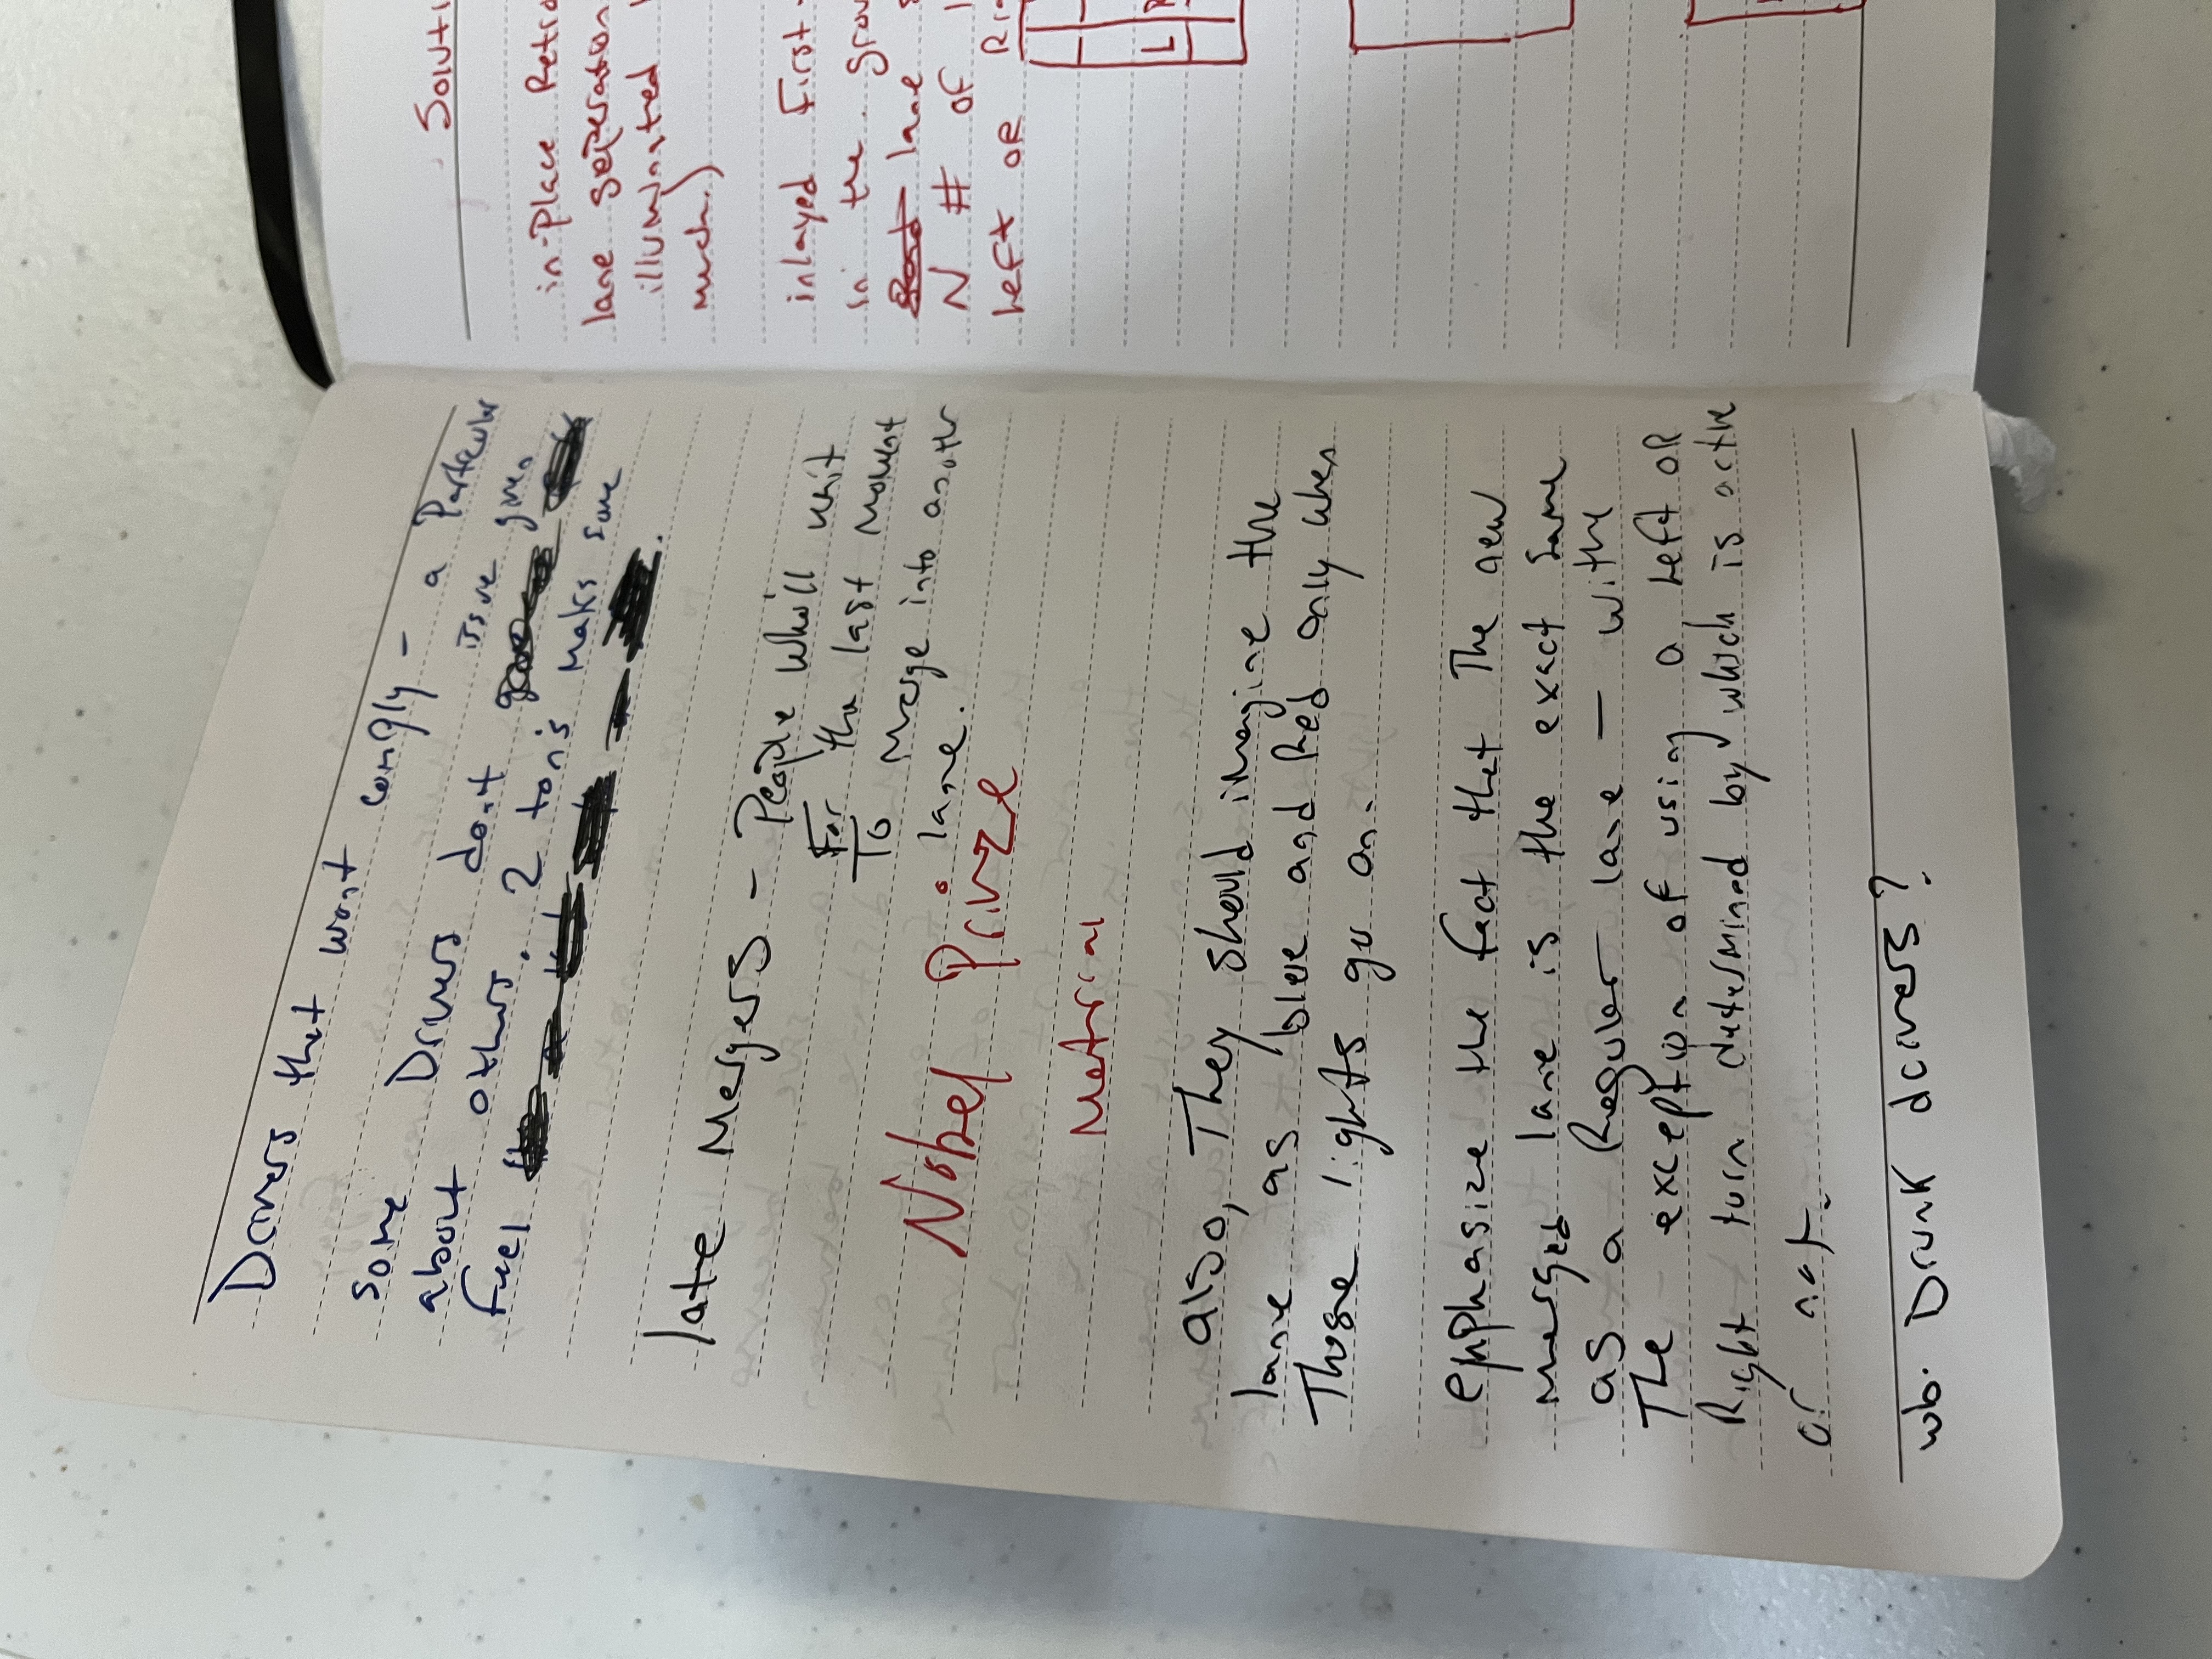 Drivers that wont comply - a Particular
issue given
some Drivers dont
about others. 2 ton's makes some
feel
late Mergers - People Who'll wait
For the last Moment
To Merge into another
lane.
Nobel Prinze
Material
also, They should imagine the
lane as blue and Red only when
Those lights go on.
emphasize the fact that The new
merged lane is the exact same
as a Reguler lane - withe
The exception of using a Left OR
Right turn determined by which is active
or not.
wb. Drunk drivers?
in-Place
lane seperation
illuminated
much.)
inlayed First
in the
lane
N # OF
Left OR
L